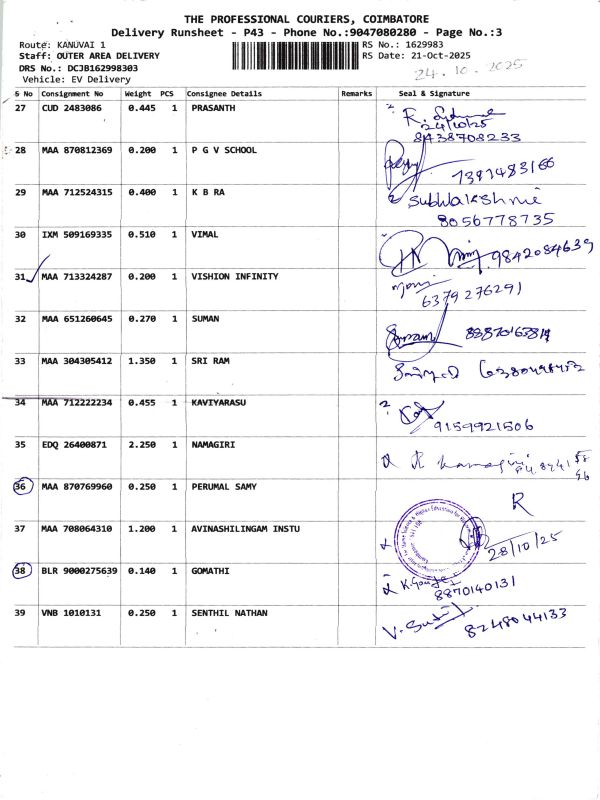 THE PROFESSIONAL COURIERS, COIMBATORE
Delivery Runsheet - P43 - Phone No.:9047080280 - Page No.:3
Route: KANUVAI 1 RS No.: 1629983
Staff: OUTER AREA DELIVERY RS Date: 21-Oct-2025
DRS No.: DCJB162998303 24.10.2025
Vehicle: EV Delivery
S No Consignment No Weight PCS Consignee Details Remarks Seal & Signature
27 CUD 2483086 0.445 1 PRASANTH
24/10/25
8438708233
28 MAA 870812369 0.200 1 P G V SCHOOL
7397483166
29 MAA 712524315 0.400 1 K B RA
8056778735
30 IXM 509169335 0.510 1 VIMAL 9842084639
31 MAA 713324287 0.200 1 VISHION INFINITY
6379276291
32 MAA 651260645 0.270 1 SUMAN
33 MAA 304305412 1.350 1 SRI RAM
34 MAA 712222234 0.455 1 KAVIYARASU
9159921506
35 EDQ 26400871 2.250 1 NAMAGIRI
36 MAA 870769960 0.250 1 PERUMAL SAMY R
37 MAA 708064310 1.200 1 AVINASHILINGAM INSTU
28/10/25
38 BLR 9000275639 0.140 1 GOMATHI
8870140131
39 VNB 1010131 0.250 1 SENTHIL NATHAN
8248044133